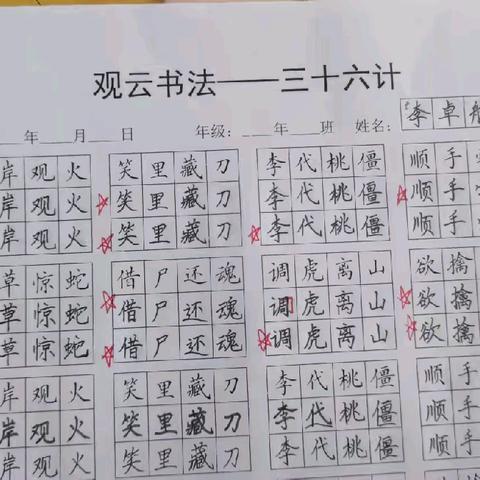 观云书法——三十六计
年___月___日 年级：___年___班 姓名： 李卓
岸观火 笑里藏刀 李代桃僵 顺手
岸观火 笑里藏刀 李代桃僵 顺手
岸观火 笑里藏刀 李代桃僵 顺手
草惊蛇 借尸还魂 调虎离山 欲擒
草惊蛇 借尸还魂 调虎离山 欲擒
草惊蛇 借尸还魂 调虎离山 欲擒
岸观火 笑里藏刀 李代桃僵 顺手
岸观火 笑里藏刀 李代桃僵 顺手
岸观火 笑里藏刀 李代桃僵 顺手